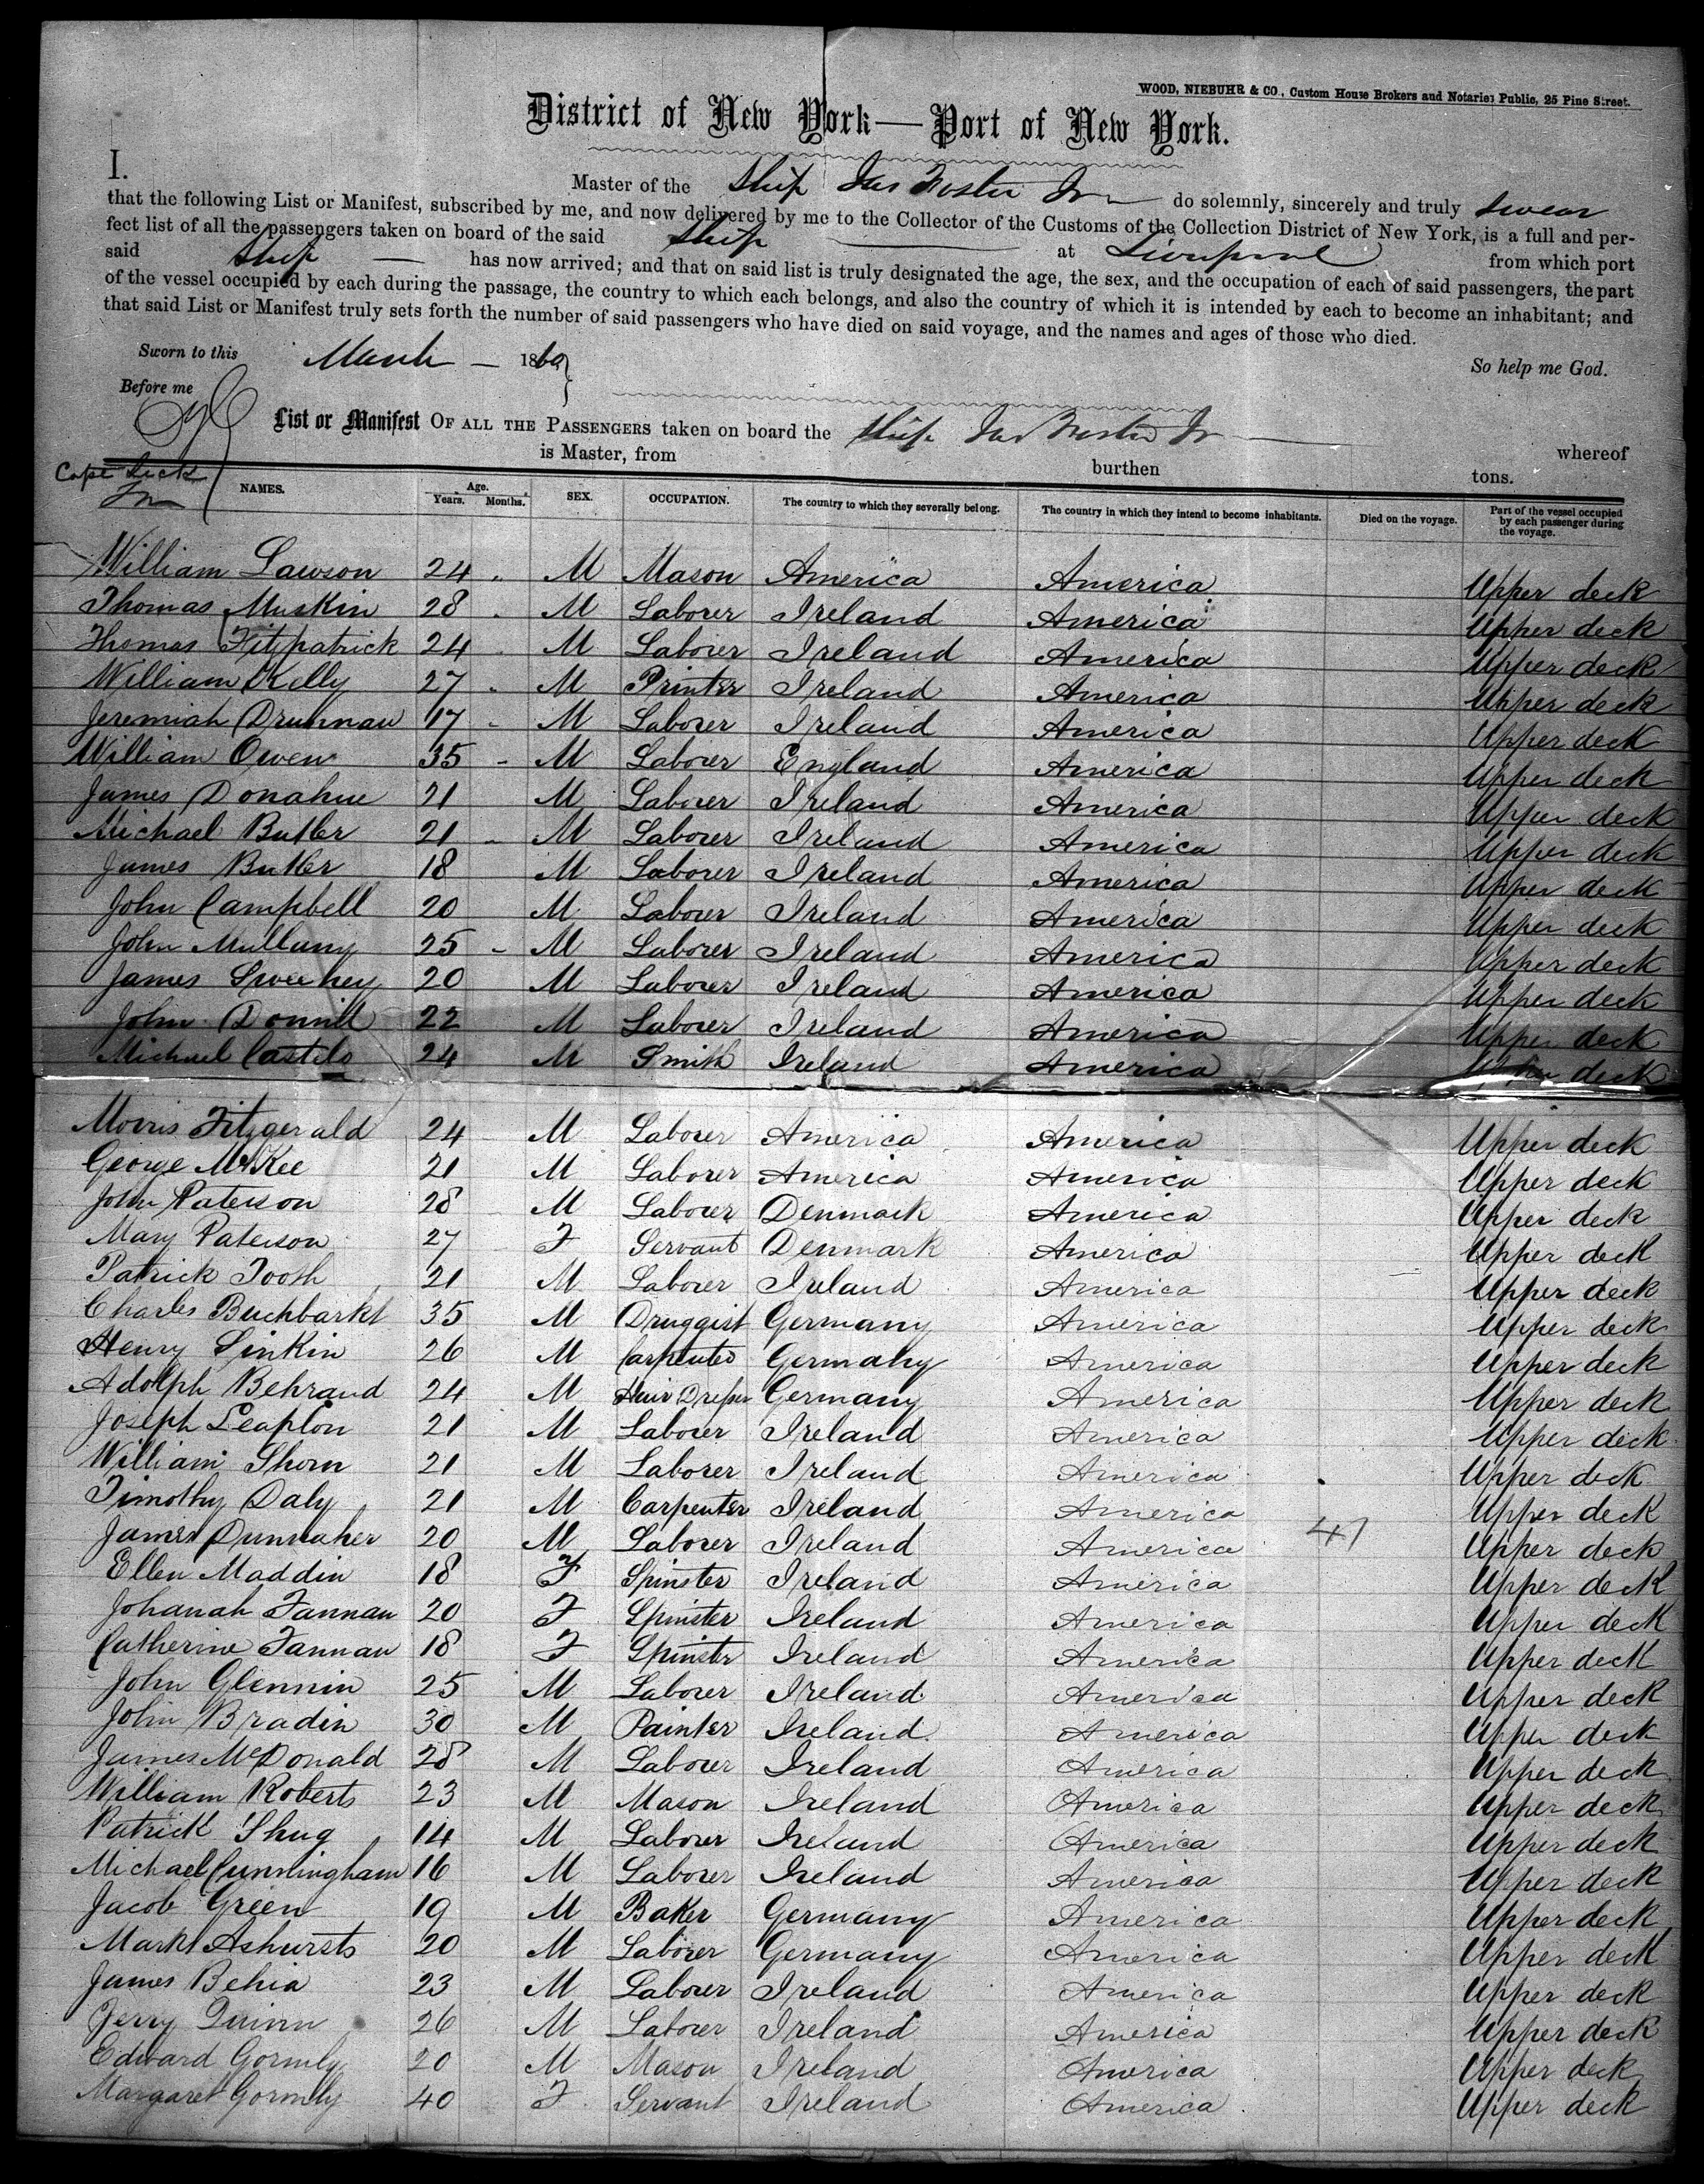 WOOD, NIEBUHR & CO., Custom House Brokers and Notaries Public, 25 Pine Street.
District of New York—Port of New York.
I. Master of the Ship Jas Foster Jr do solemnly, sincerely and truly swear
that the following List or Manifest, subscribed by me, and now delivered by me to the Collector of the Customs of the Collection District of New York, is a full and per-
fect list of all the passengers taken on board of the said Ship at Liverpool from which port
said Ship has now arrived; and that on said list is truly designated the age, the sex, and the occupation of each of said passengers, the part
of the vessel occupied by each during the passage, the country to which each belongs, and also the country of which it is intended by each to become an inhabitant; and
that said List or Manifest truly sets forth the number of said passengers who have died on said voyage, and the names and ages of those who died.
Sworn to this March 1869 So help me God.
Before me
List or Manifest OF ALL THE PASSENGERS taken on board the Ship Jas Foster Jr whereof
is Master, from burthen tons.
NAMES. Age. Years. Months. SEX. OCCUPATION. The country to which they severally belong. The country in which they intend to become inhabitants. Died on the voyage. Part of the vessel occupied by each passenger during the voyage.
William Lawson 24 M Mason America America Upper deck
Thomas Muskin 28 M Laborer Ireland America Upper deck
Thomas Fitzpatrick 24 M Laborer Ireland America Upper deck
William Kelly 27 M Printer Ireland America Upper deck
Jeremiah Drunnan 17 M Laborer Ireland America Upper deck
William Owen 35 M Laborer England America Upper deck
James Donahue 21 M Laborer Ireland America Upper deck
Michael Butler 21 M Laborer Ireland America Upper deck
James Butler 18 M Laborer Ireland America Upper deck
John Campbell 20 M Laborer Ireland America Upper deck
John Mullany 25 M Laborer Ireland America Upper deck
James Sweeney 20 M Laborer Ireland America Upper deck
John 22 M Laborer Ireland America Upper deck
Michael Castelo 24 M Smith Ireland America Upper deck
Morris Fitzgerald 24 M Laborer America America Upper deck
George McKee 21 M Laborer America America Upper deck
John Paterson 28 M Laborer Denmark America Upper deck
Mary Paterson 27 F Servant Denmark America Upper deck
Patrick Toosh 21 M Laborer Ireland America Upper deck
Charles Buchbarkt 35 M Druggist Germany America Upper deck
Henry Sinkin 26 M Carpenter Germany America Upper deck
Adolph Behrand 24 M Hair Dresser Germany America Upper deck
Joseph Leaplon 21 M Laborer Ireland America Upper deck
William Shorn 21 M Laborer Ireland America Upper deck
Timothy Daly 21 M Carpenter Ireland America Upper deck
James Dunnaher 20 M Laborer Ireland America 41 Upper deck
Ellen Maddin 18 F Spinster Ireland America Upper deck
Johanah Fannan 20 F Spinster Ireland America Upper deck
Catherine Fannan 18 F Spinster Ireland America Upper deck
John Glennin 25 M Laborer Ireland America Upper deck
John Bradin 30 M Painter Ireland America Upper deck
James McDonald 28 M Laborer Ireland America Upper deck
William Roberts 23 M Mason Ireland America Upper deck
Patrick Shug 14 M Laborer Ireland America Upper deck
Michael Cunningham 16 M Laborer Ireland America Upper deck
Jacob Green 19 M Baker Germany America Upper deck
Mark Ashursts 20 M Laborer Germany America Upper deck
James Behia 23 M Laborer Ireland America Upper deck
Jerry Quinn 26 M Laborer Ireland America Upper deck
Edward Gormly 20 M Mason Ireland America Upper deck
Margaret Gormly 40 F Servant Ireland America Upper deck